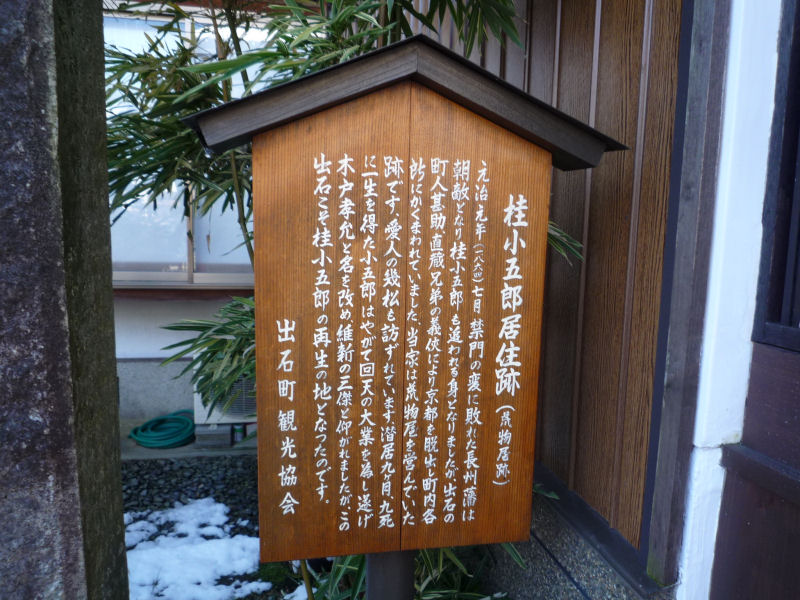 桂小五郎居住跡(荒物屋跡)
元治元年(一八六四)七月 禁門の変に敗れた長州藩は
朝敵となり 桂小五郎も追われる身となりましたが 出石の
町人甚助、直蔵兄弟の義侠により京都を脱出し町内各
所にかくまわれていました 当家は荒物屋を営んでいた
跡です、愛人の幾松も訪ずれています 潜居九ヶ月、九死
に一生を得た小五郎はやがて回天の大業を為し遂げ
木戸孝允と名を改め維新の三傑と仰がれましたが この
出石こそ桂小五郎の再生の地となつたのです。
出石町観光協会